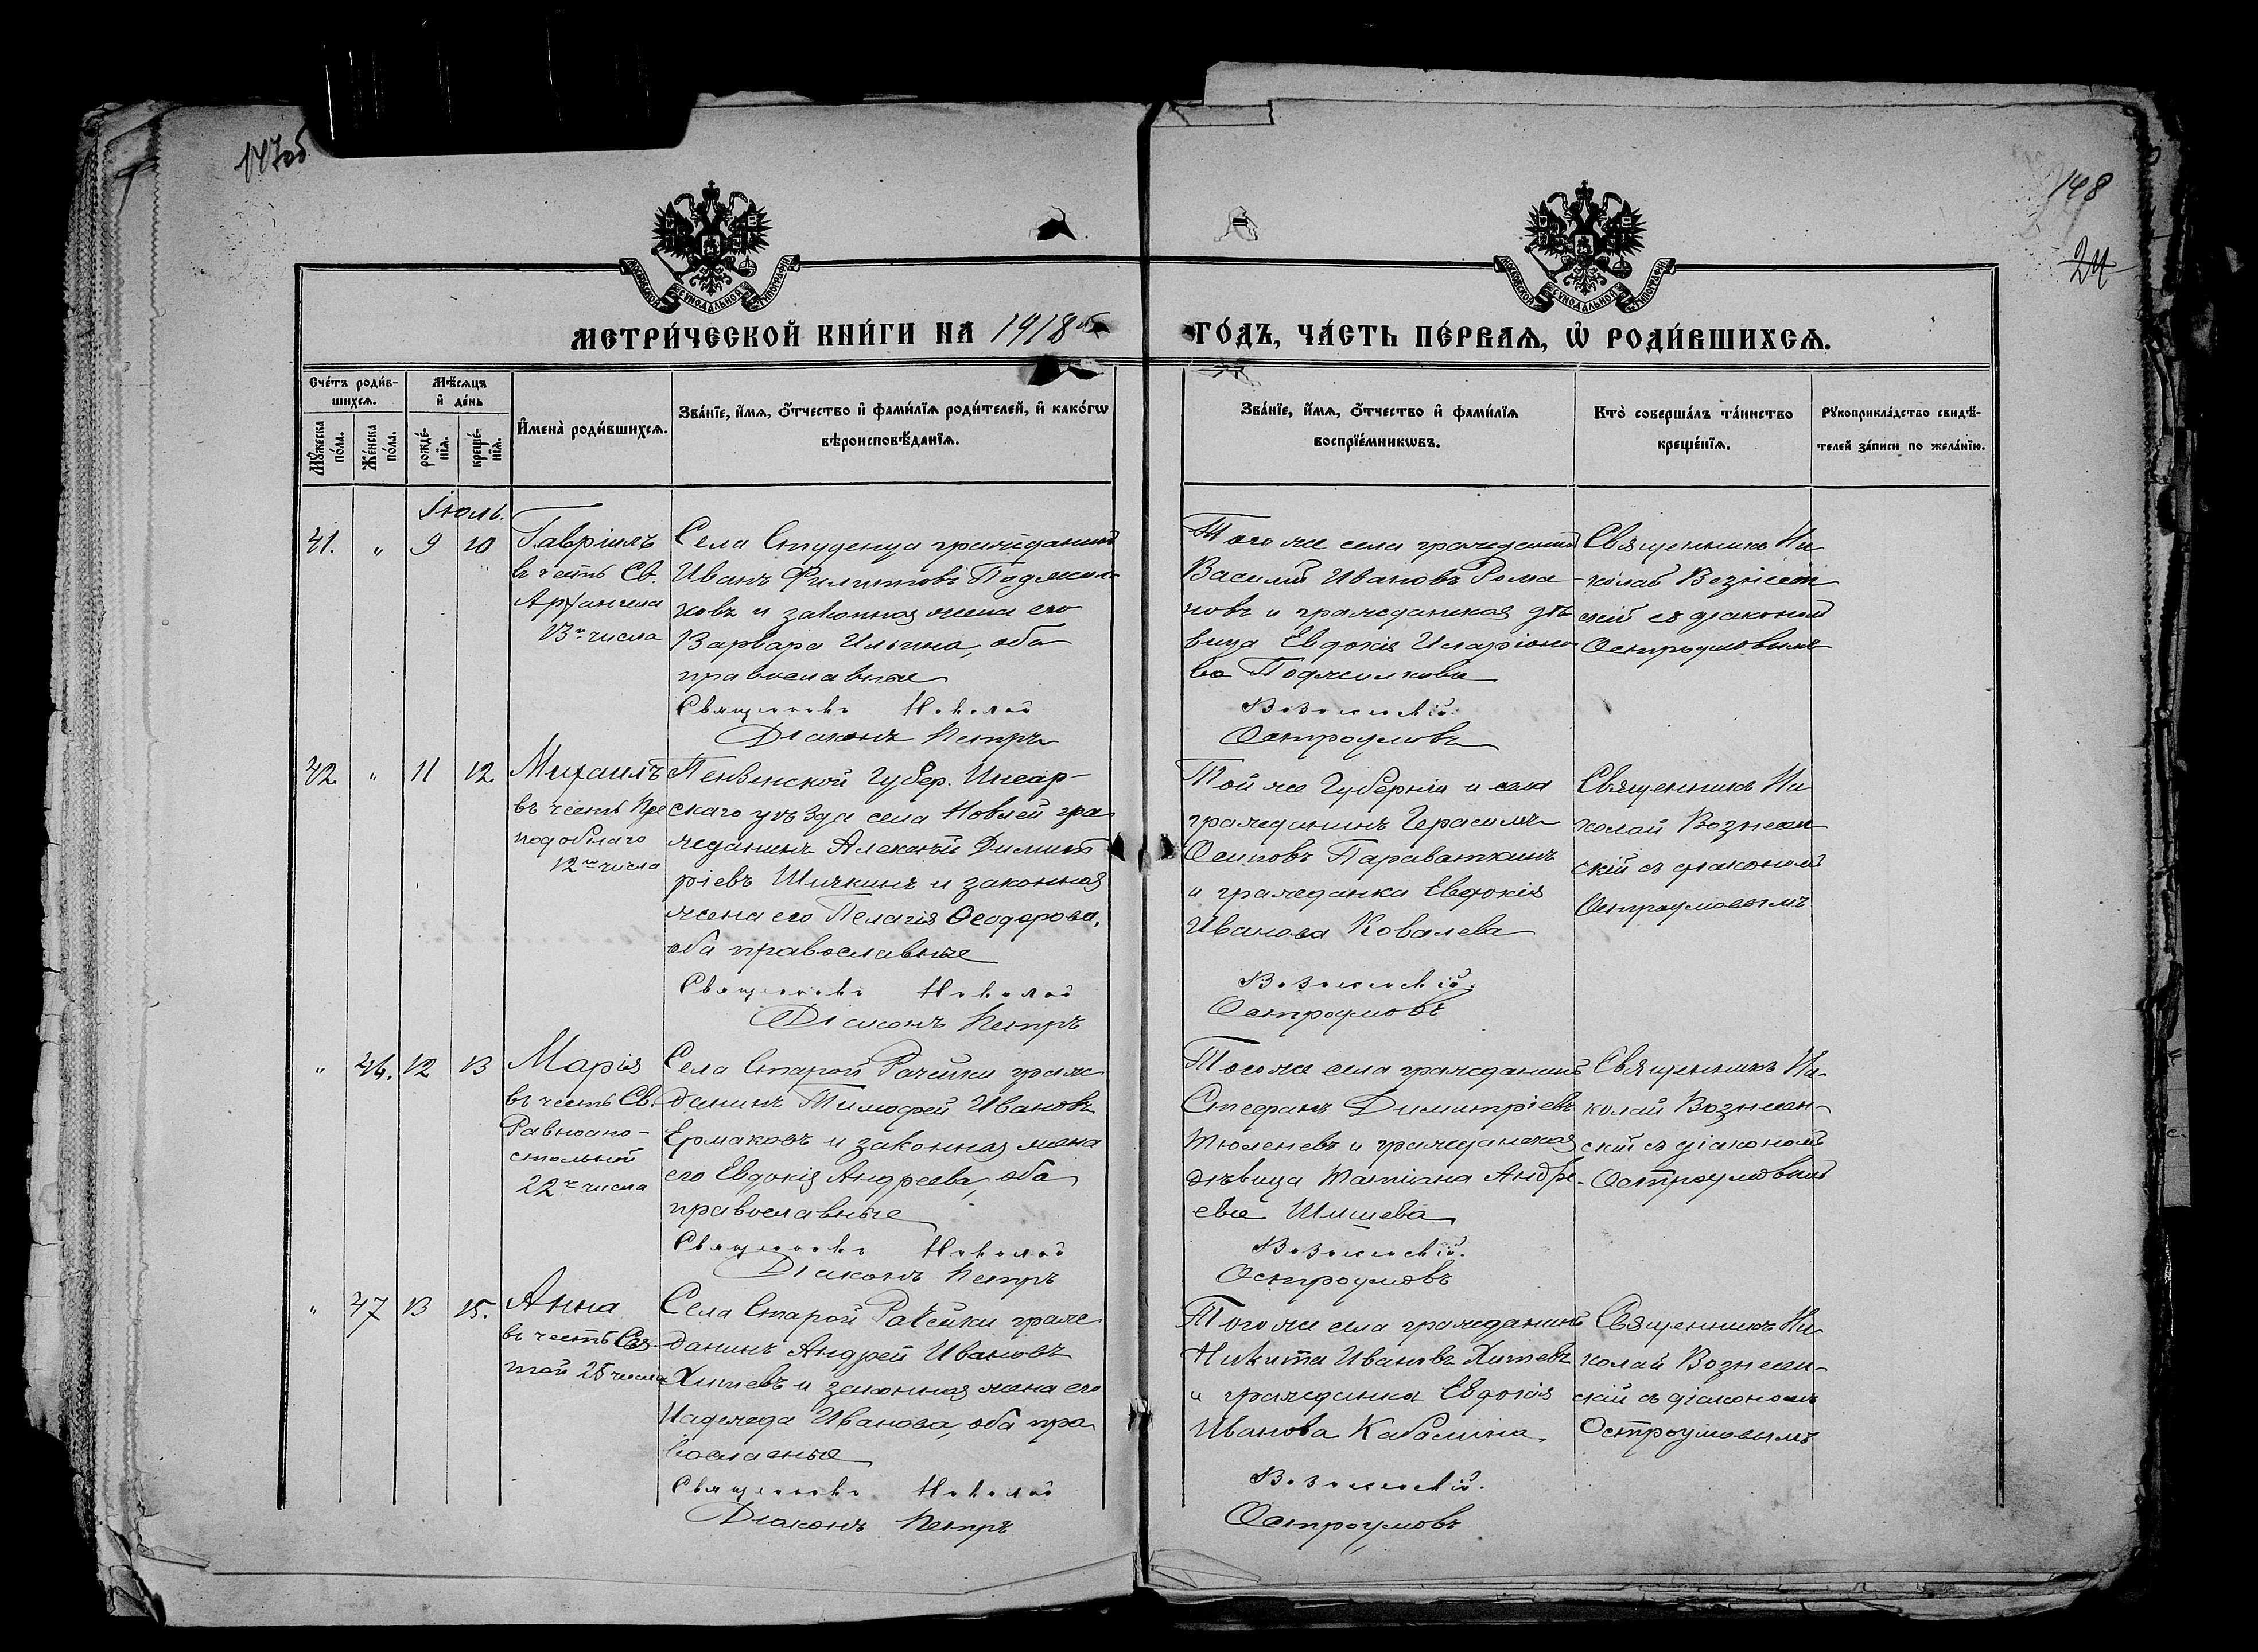 147об
148
24
МОСКОВСКОЙ СѴНОДАЛЬНОЙ ТИПОГРАФІИ
МОСКОВСКОЙ СѴНОДАЛЬНОЙ ТИПОГРАФІИ
МЕТРИ́ЧЕСКОЙ КНИ́ГИ НА 1918
ГО́ДЪ, ЧА́СТЬ ПЕ́РВАѦ, Ѡ҆ РОДИ́ВШИХСѦ.
Сче́тъ роди́в-
шихсѧ.
Мꙋ́жеска по́ла.
Же́нска по́ла.
Мѣ́сѧцъ
и҆ де́нь
рожде́-
нїѧ.
креще́-
нїѧ.
И҆мена̀ роди́вшихсѧ.
Зва́нїе, и҆́мѧ, ѻ҆́тчество и҆ фами́лїѧ роди́телей, и҆ како́гѡ
вѣроисповѣ́данїѧ.
Зва́нїе, и҆́мѧ, ѻ҆́тчество и҆ фами́лїѧ
воспрїе́мникѡвъ.
Кто̀ соверша́лъ та́инство
креще́нїѧ.
Рꙋкоприкла́дство свидѣ́-
телей за́писи по жела́нїю.
Іюль.
41. " 9 10
Гавріилъ
въ честь Св.
Архангела
13го числа
Села Студенца гражданинъ
Иванъ Филипповъ Поджил
ковъ и законная жена его
Варвара Ильина, оба
православные
Священникъ Николай
Діаконъ Петръ
Того же села гражданинъ
Василій Ивановъ Рома
новъ и гражданская дѣ
вица Евдокія Иларіоно
ва Поджилкова
Вознесенскій.
Остроумовъ
Священникъ Ни
колай Вознесен
скій съ діакономъ
Остроумовымъ
42. " 11 12
Михаилъ
въ честь Пре
подобнаго
12го числа
Пензенской Губер. Инсар-
скаго уѣзда села Новлей гра
жданинъ Алексѣй Димит
ріевъ Шичкинъ и законная
жена его Пелагія Ѳеодорова,
оба православные
Священникъ Николай
Діаконъ Петръ
Той же Губерніи и села
гражданинъ Герасимъ
Осиповъ Параваткинъ
и гражданка Евдокія
Иванова Ковалева
Вознесенскій.
Остроумовъ
Священникъ Ни
колай Вознесен
скій съ діакономъ
Остроумовымъ
" 46. 12 13
Марія
въ честь Св.
Равноапо-
стольной
22го числа
Села Старой Рачейки граж
данинъ Тимофей Ивановъ
Ермаковъ и законная жена
его Евдокія Андреева, оба
православные
Священникъ Николай
Діаконъ Петръ
Того же села гражданинъ
Стефанъ Димитріевъ
Тюленевъ и гражданская
дѣвица Татіана Андре-
ева Шишева
Вознесенскій.
Остроумовъ
Священникъ Ни
колай Вознесен-
скій съ діакономъ
Остроумовымъ
" 47 13 15.
Анна
въ честь Свя-
той 25 числа
Села Старой Рачейки граж
данинъ Андрей Ивановъ
Хитевъ и законная жена его
Надежда Иванова, оба пра
вославные
Священникъ Николай
Діаконъ Петръ
Того же села гражданинъ
Никита Ивановъ Хитевъ
и гражданка Евдокія
Иванова Кабалина.
Вознесенскій.
Остроумовъ
Священникъ Ни
колай Вознесен-
скій съ діакономъ
Остроумовымъ